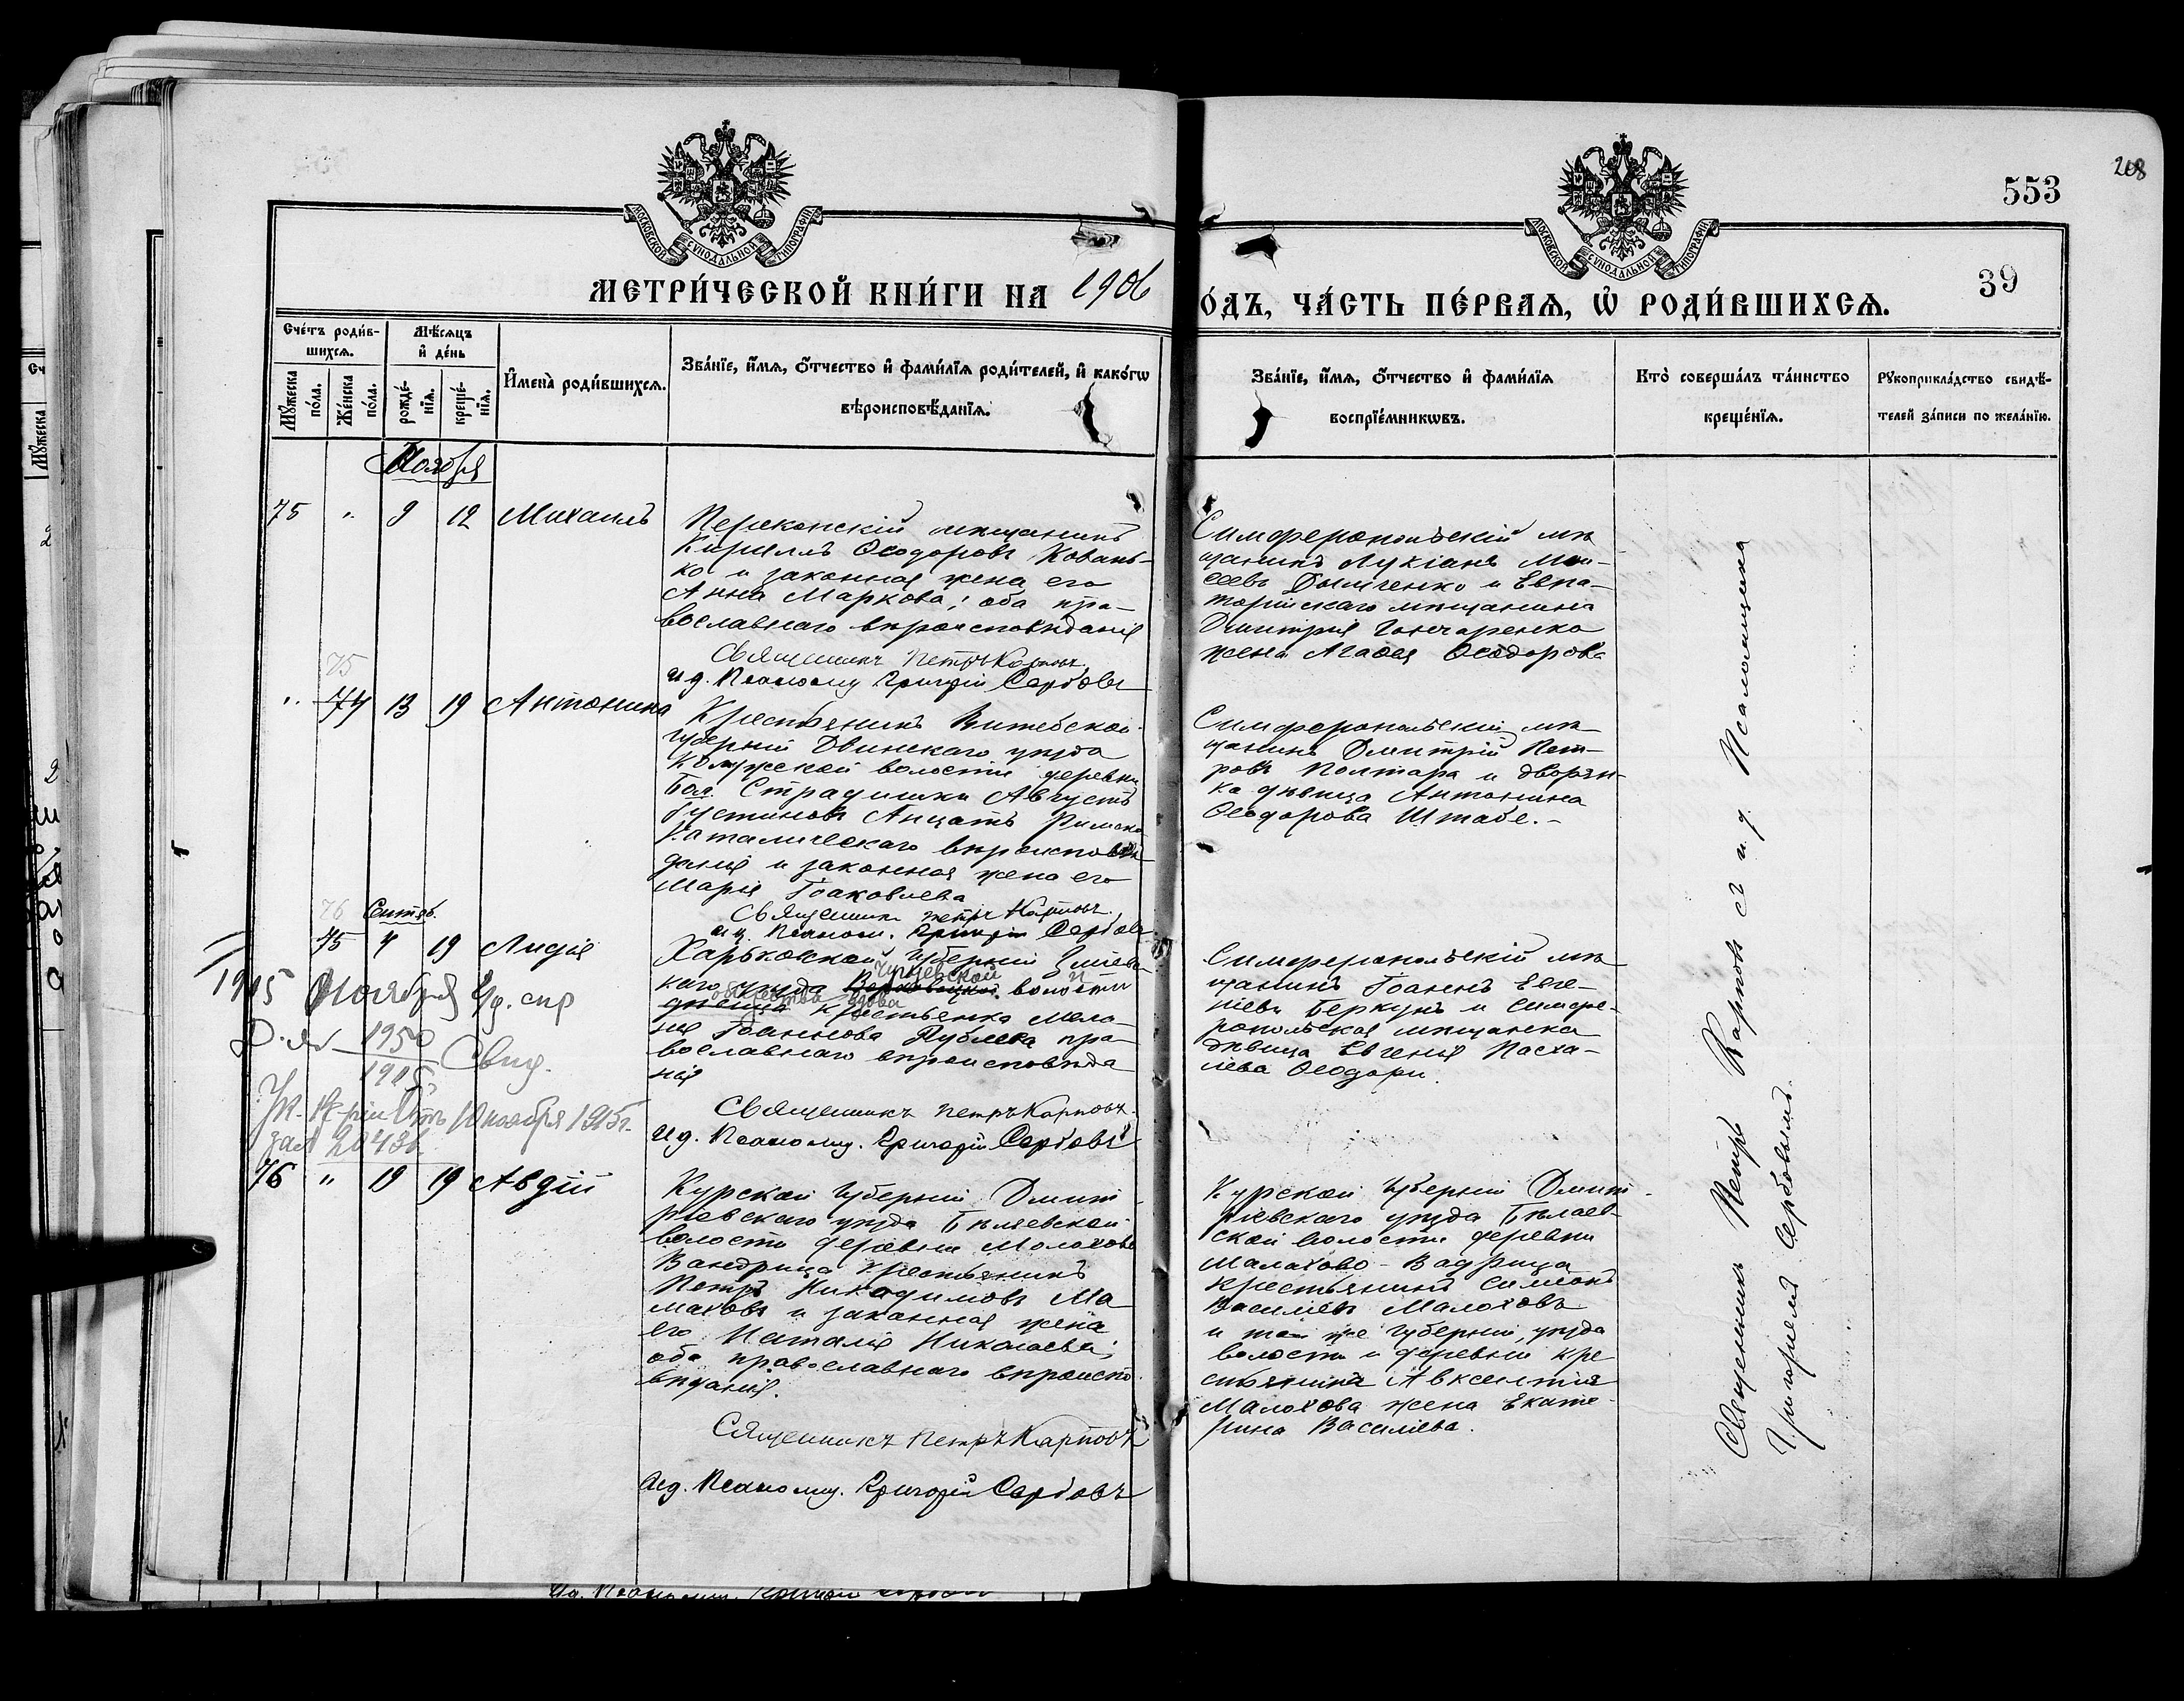 208
553
39
МОСКОВСКОЙ СУНОДАЛЬНОЙ ТИПОГРАФІИ
МОСКОВСКОЙ СУНОДАЛЬНОЙ ТИПОГРАФІИ
МЕТРИ́ЧЕСКОЙ КНИ́ГИ НА 1906
О́ДЪ, ЧА́СТЬ ПЕ́РВАѦ, Ѽ РОДИ́ВШИХСѦ.
Сче́тъ роди́в-
шихсѧ.
Мꙋ́жеска
по́ла.
Же́нска
по́ла.
Мѣ́сѧцъ
и҆ де́нь
рожде́-
нїѧ.
креще́-
нїѧ.
И҆мена̀ роди́вшихсѧ.
Зва́нїе, и҆́мѧ, ѻ҆́тчество и҆ фами́лїѧ роди́телей, и҆ како́гѡ
вѣроисповѣ́данїѧ.
Зва́нїе, и҆́мѧ, ѻ҆́тчество и҆ фами́лїѧ
воспрїе́мникѡвъ.
Кто̀ соверша́лъ та́инство
креще́нїѧ.
Рꙋкоприкла́дство свидѣ́-
телей за́писи по жела́нїю.
Ноября
75 " 9 12 Михаилъ
Перекопскій мѣщанинъ
Кириллъ Ѳеодоровъ Ковань-
ко и законная жена его
Анна Маркова; оба пра-
вославнаго вѣроисповѣданія
Священникъ Петръ Карповъ
И д. Псаломщ Григорій Сербовъ
Симферопольскій мѣ
щанинъ Лукіанъ Мои-
сеевъ Дымченко и Евпа-
торійскаго мѣщанина
Дмитрія Гончаренко
жена Агаѳія Ѳеодорова
75
" 74 13 19 Антонина
Крестьянинъ Витебской
губерніи Двинскаго уѣзда
волости деревни
Бол. Страдишки Августъ
Густиновъ Анцатъ Римско-
Каталическаго вѣроисповѣ-
данія и законная жена его
Марія Іоаковлева
Священникъ Петръ Карповъ
и д. Псалом. Григорій Сербовъ
Симферопольскій мѣ
щанинъ Дмитрій Пет-
ровъ Полтара и дворян-
ка дѣвица Антонина
Ѳеодорова Штабе.-
76 Сентяб.
75 4 19 Лидія
Харьковской губерніи Зміевс-
каго уѣзда волости
Чугуевской
общества вдова
дѣвица крестьянка Мела-
нія Іоаннова пра-
вославнаго вѣроисповѣда
нія
Священникъ Петръ Карповъ.
И д. Псаломщ. Григорій Сербовъ
1915 Ноября Уд. спр
Д. дх 1950
1915 Свид.
10 ноября 1915 г.
за № 20436
Симферопольскій мѣ
щанинъ Іоаннъ Евге-
ніевъ Беркунъ и симфе-
ропольская мѣщанска
дѣвица Евгенія Пасха-
лева Ѳеодори.
76 " 19 19 Авдій
Курской губерніи Дмит-
ріевскаго уѣзда Бѣляевской
волости деревни Молохово
Вандрица крестьянинъ
Петръ Никодимовъ Ма
лаховъ и законная жена
его Наталія Николаева;
оба православнаго вѣроиспо
вѣданія.
Сященникъ Петръ Карповъ
И д. Псаломщ. Григорій Сербовъ
Курской губерніи Дмит-
ріевскаго уѣзда Бѣлаев-
ской волости деревни
Малахово-Вадрица
крестьянинъ Симеонъ
Василіевъ Малоховъ
и той же губерніи, уѣзда
волости и деревни кре
стьянина Авксентія
Малохова жена Екате-
рина Василіева.
Священникъ Петръ Карповъ съ и. д. Псаломщика
Григоріемъ Сербовымъ.